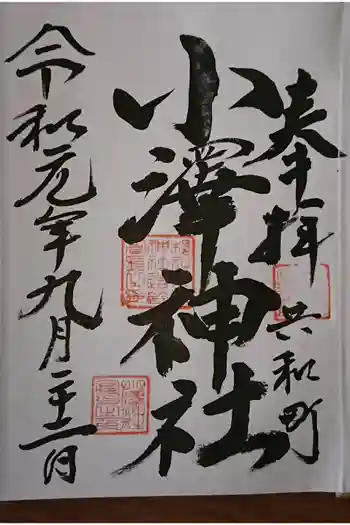 奉拝 共和町
小澤神社
令和元年九月二十二日